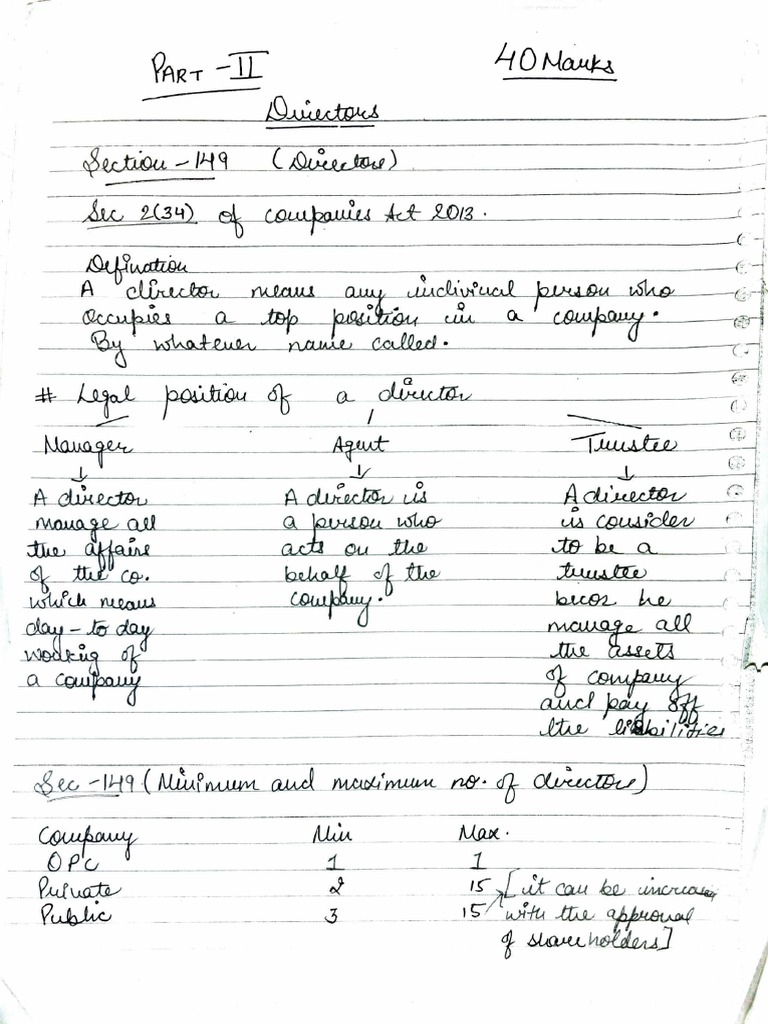 PART - II
40 Marks
Directors
Section - 149 (Directors)
Sec 2(34) of companies Act 2013.
Defination
A director means any indiviual person who
occupies a top position in a company.
By whatever name called.
# Legal position of a director
Manager
A director
manage all
the affairs
of the co.
which means
day - to day
working of
a company
Agent
A director is
a person who
acts on the
behalf of the
company.
Trustee
A director
is consider
to be a
trustee
becoz he
manage all
the assets
of company
and pay off
the liabilities
Sec - 149 (Minimum and maximum no. of directors)
Company Min Max.
OPC 1 1
Private 2 15 [it can be increase
Public 3 15 with the approval
of shareholders]